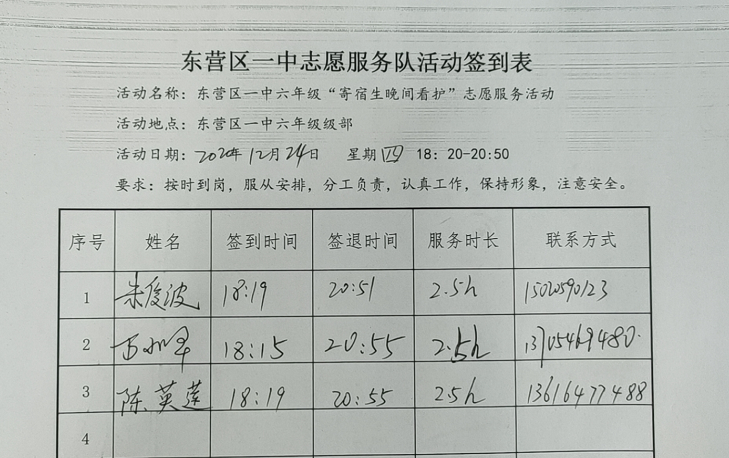 东营区一中志愿服务队活动签到表
活动名称：东营区一中六年级“寄宿生晚间看护”志愿服务活动
活动地点：东营区一中六年级级部
活动日期：2020年12月24日 星期四 18：20-20:50
要求：按时到岗，服从安排，分工负责，认真工作，保持形象，注意安全。
序号 姓名 签到时间 签退时间 服务时长 联系方式
1 朱俊波 18:19 20:51 2.5h
2 18:15 20:55 2.5h 13705469480
3 陈英莲 18:19 20:55 2.5h 13616477488
4